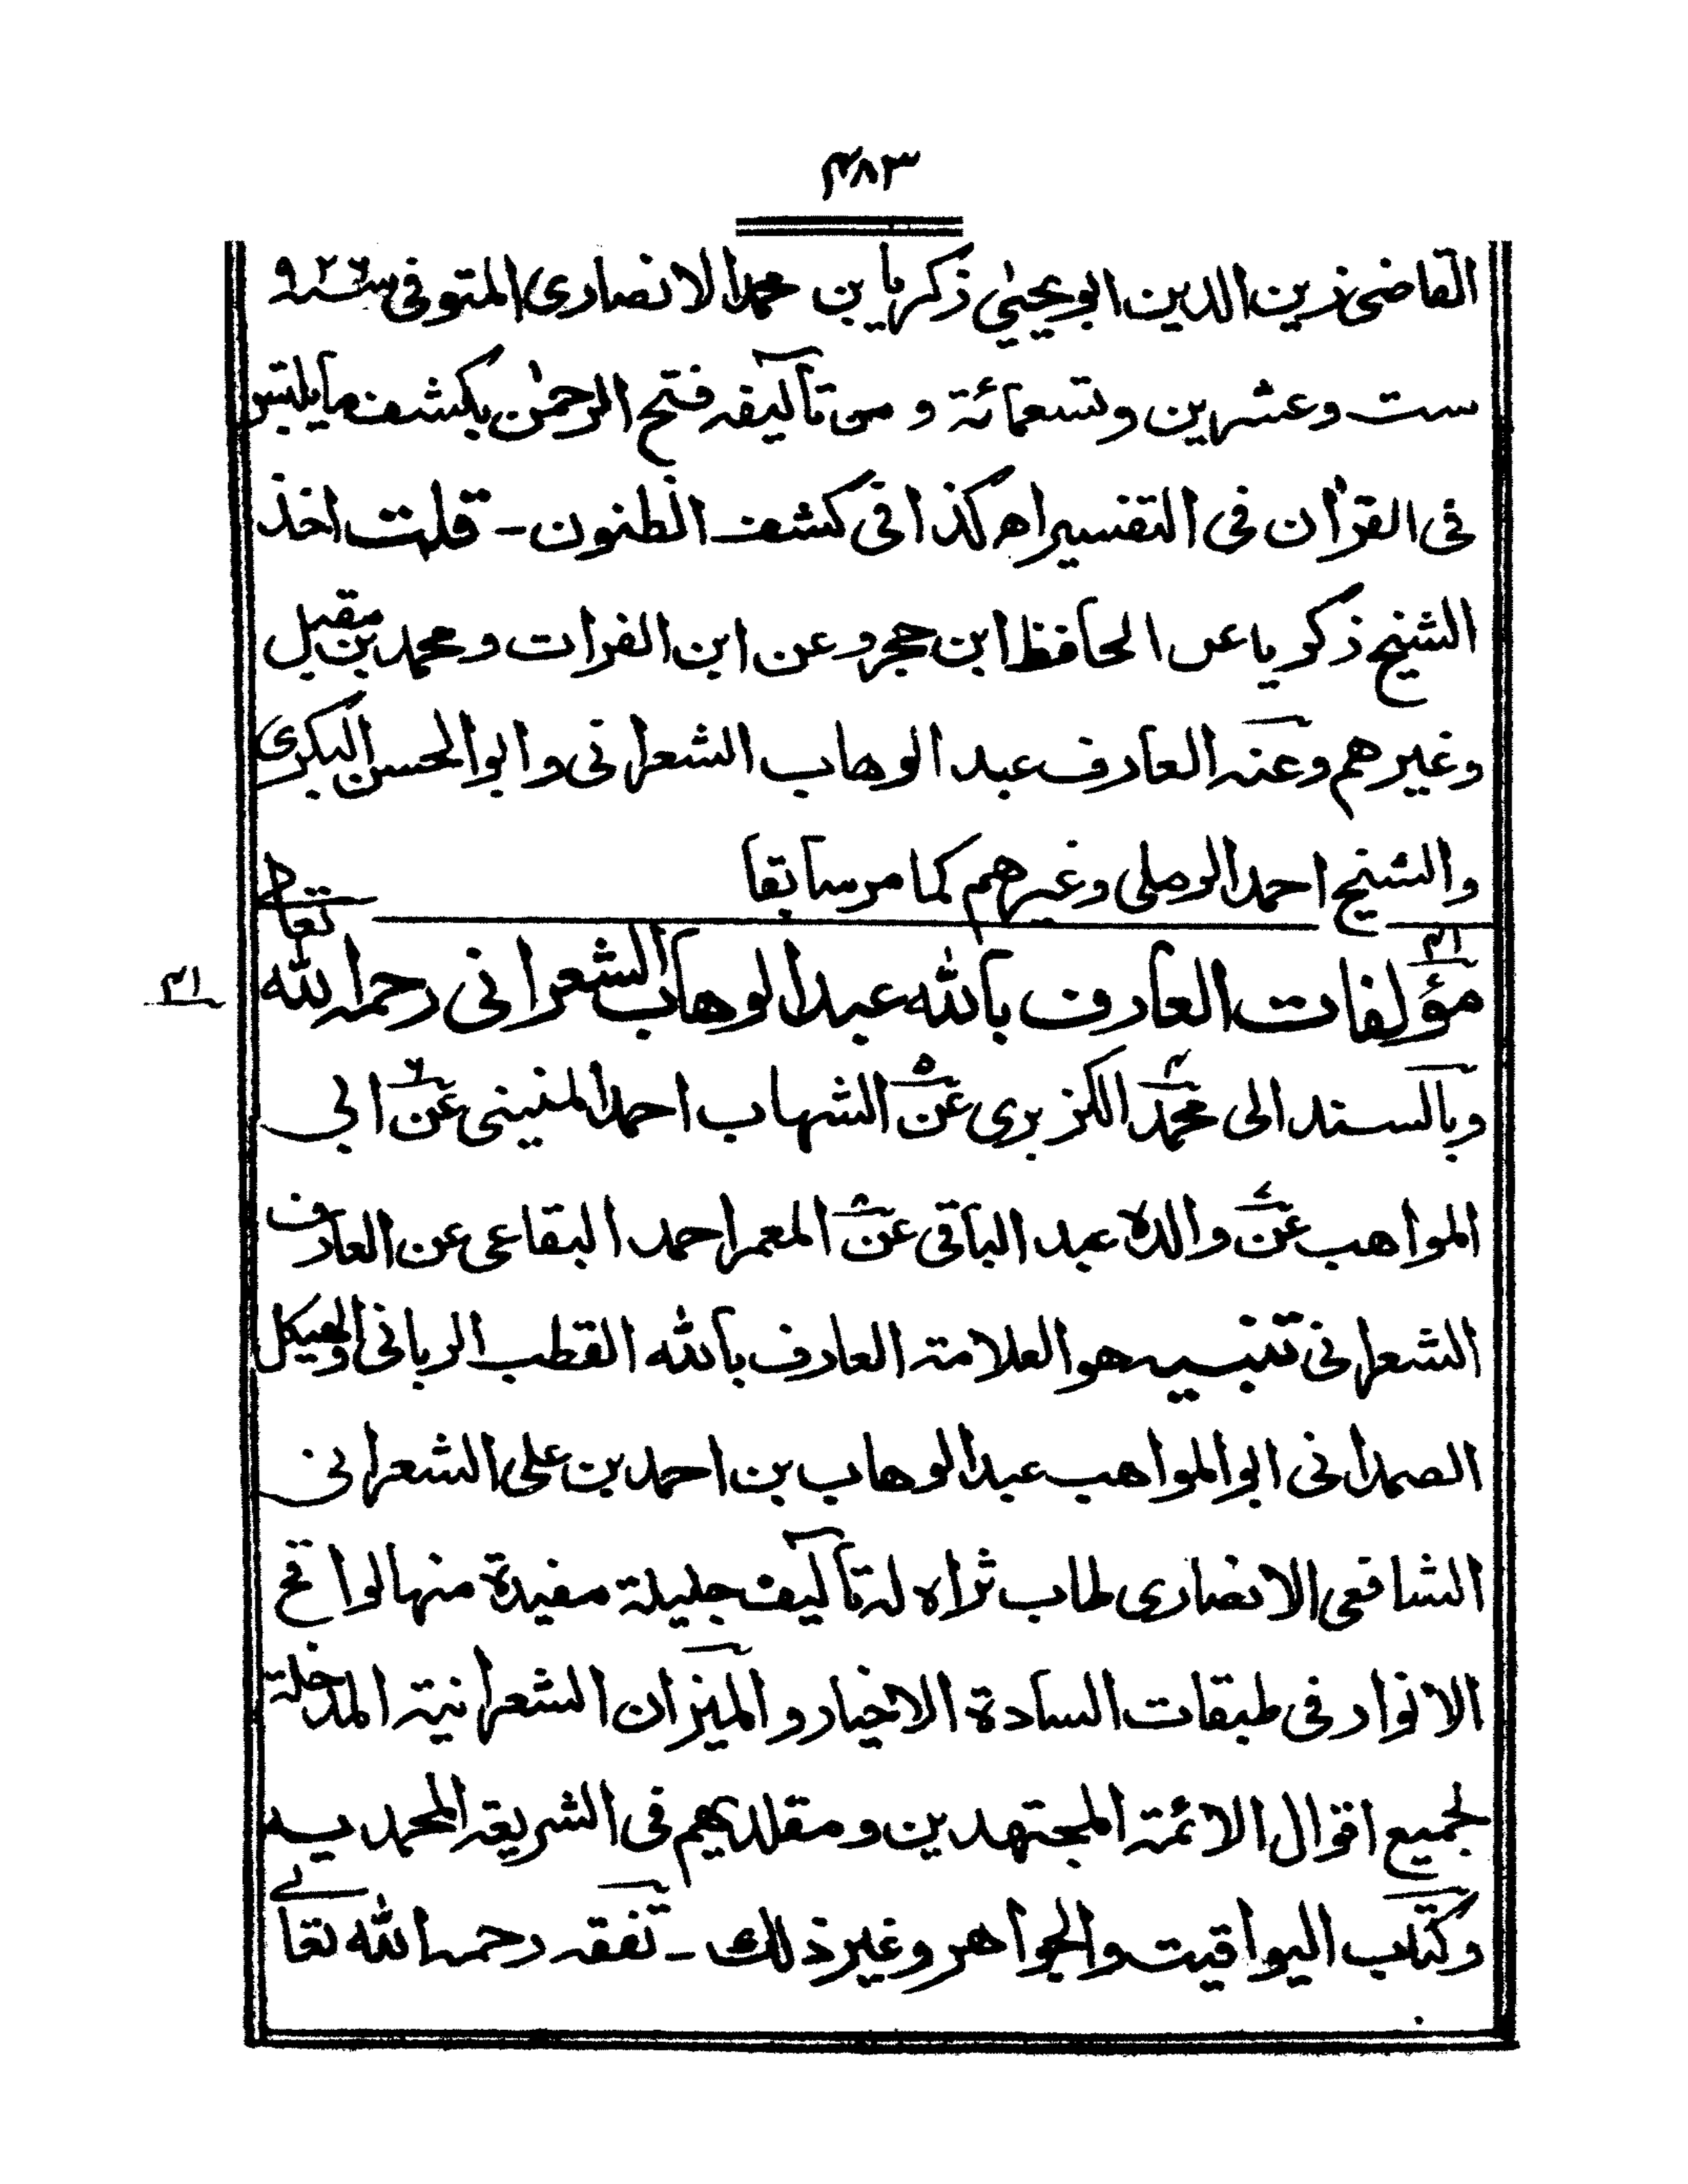 ۴۸۳
القاضى زين الدين ابو يحيىٰ زكريا بن محمد الانصارى المتوفى سنه ۹۲۶
ست وعشرين وتسعمائة و من تآليفه فتح الرحمٰن بكشف ما يلتبس
فى القرآن فى التفسير اهـ كذا فى كشف الظنون - قلت اخذ
الشيخ زكريا عن الحافظ ابن حجر وعن ابن الفرات و محمد بن مقبل
وغيرهم وعنه العارف عبد الوهاب الشعرانى و ابو الحسن البكرى
والشيخ احمد الرملى وغيرهم كما مر سابقا
۴۱ مؤلفات العارف بالله عبد الوهاب الشعرانى رحمه الله تعالى ۴۱
وبالسند الى محمد۴ الكزبرى عن۵ الشهاب احمد المنينى عن۶ ابى
المواهب عن۷ والده عبد الباقى عن۸ المعمر احمد البقاعى عن العارف
الشعرانى تنبيه هو العلامة العارف بالله القطب الربانى والهيكل
الصمدانى ابو المواهب عبد الوهاب بن احمد بن على الشعرانى
الشافعى الانصارى طاب ثراه له تآليف جليلة مفيدة منها لواقح
الانوار فى طبقات السادة الاخيار و الميزان الشعرانية المدخلة
لجميع اقوال الائمة المجتهدين و مقلديهم فى الشريعة المحمديه
وكتاب اليواقيت والجواهر وغير ذلك - تفقه رحمه الله تعالے